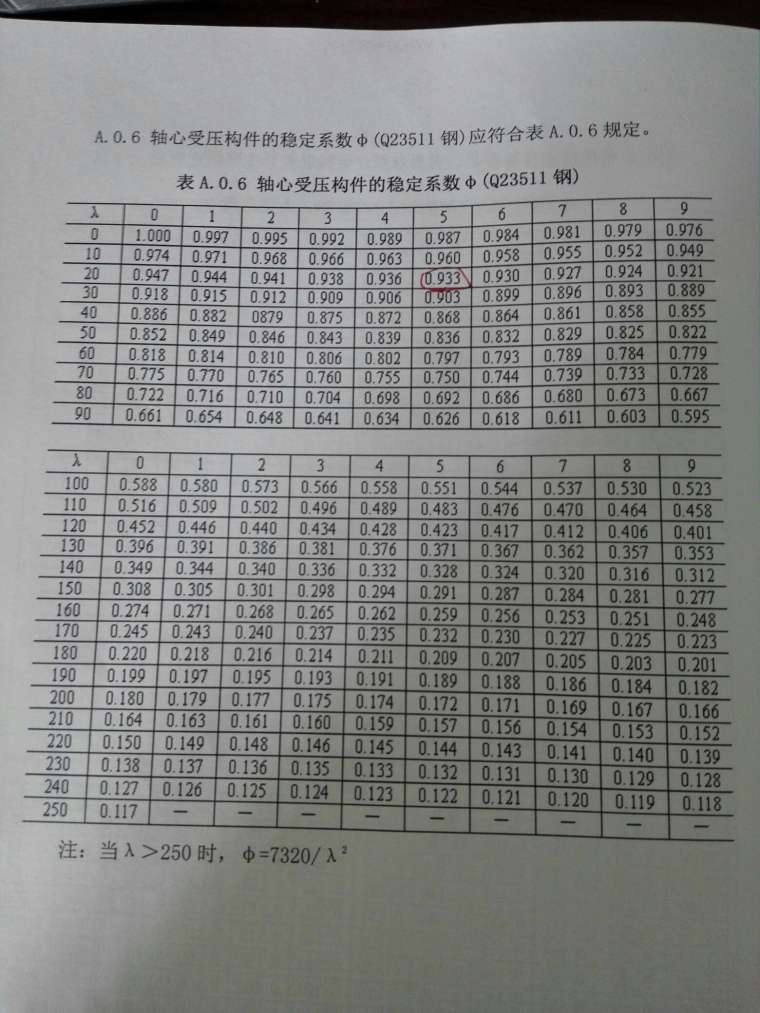 A.0.6 轴心受压构件的稳定系数φ(Q23511钢)应符合表A.0.6规定。
表A.0.6 轴心受压构件的稳定系数φ(Q23511钢)
λ 0 1 2 3 4 5 6 7 8 9
0 1.000 0.997 0.995 0.992 0.989 0.987 0.984 0.981 0.979 0.976
10 0.974 0.971 0.968 0.966 0.963 0.960 0.958 0.955 0.952 0.949
20 0.947 0.944 0.941 0.938 0.936 0.933 0.930 0.927 0.924 0.921
30 0.918 0.915 0.912 0.909 0.906 0.903 0.899 0.896 0.893 0.889
40 0.886 0.882 0879 0.875 0.872 0.868 0.864 0.861 0.858 0.855
50 0.852 0.849 0.846 0.843 0.839 0.836 0.832 0.829 0.825 0.822
60 0.818 0.814 0.810 0.806 0.802 0.797 0.793 0.789 0.784 0.779
70 0.775 0.770 0.765 0.760 0.755 0.750 0.744 0.739 0.733 0.728
80 0.722 0.716 0.710 0.704 0.698 0.692 0.686 0.680 0.673 0.667
90 0.661 0.654 0.648 0.641 0.634 0.626 0.618 0.611 0.603 0.595
λ 0 1 2 3 4 5 6 7 8 9
100 0.588 0.580 0.573 0.566 0.558 0.551 0.544 0.537 0.530 0.523
110 0.516 0.509 0.502 0.496 0.489 0.483 0.476 0.470 0.464 0.458
120 0.452 0.446 0.440 0.434 0.428 0.423 0.417 0.412 0.406 0.401
130 0.396 0.391 0.386 0.381 0.376 0.371 0.367 0.362 0.357 0.353
140 0.349 0.344 0.340 0.336 0.332 0.328 0.324 0.320 0.316 0.312
150 0.308 0.305 0.301 0.298 0.294 0.291 0.287 0.284 0.281 0.277
160 0.274 0.271 0.268 0.265 0.262 0.259 0.256 0.253 0.251 0.248
170 0.245 0.243 0.240 0.237 0.235 0.232 0.230 0.227 0.225 0.223
180 0.220 0.218 0.216 0.214 0.211 0.209 0.207 0.205 0.203 0.201
190 0.199 0.197 0.195 0.193 0.191 0.189 0.188 0.186 0.184 0.182
200 0.180 0.179 0.177 0.175 0.174 0.172 0.171 0.169 0.167 0.166
210 0.164 0.163 0.161 0.160 0.159 0.157 0.156 0.154 0.153 0.152
220 0.150 0.149 0.148 0.146 0.145 0.144 0.143 0.141 0.140 0.139
230 0.138 0.137 0.136 0.135 0.133 0.132 0.131 0.130 0.129 0.128
240 0.127 0.126 0.125 0.124 0.123 0.122 0.121 0.120 0.119 0.118
250 0.117 — — — — — — — — —
注：当λ＞250时，φ=7320/λ²